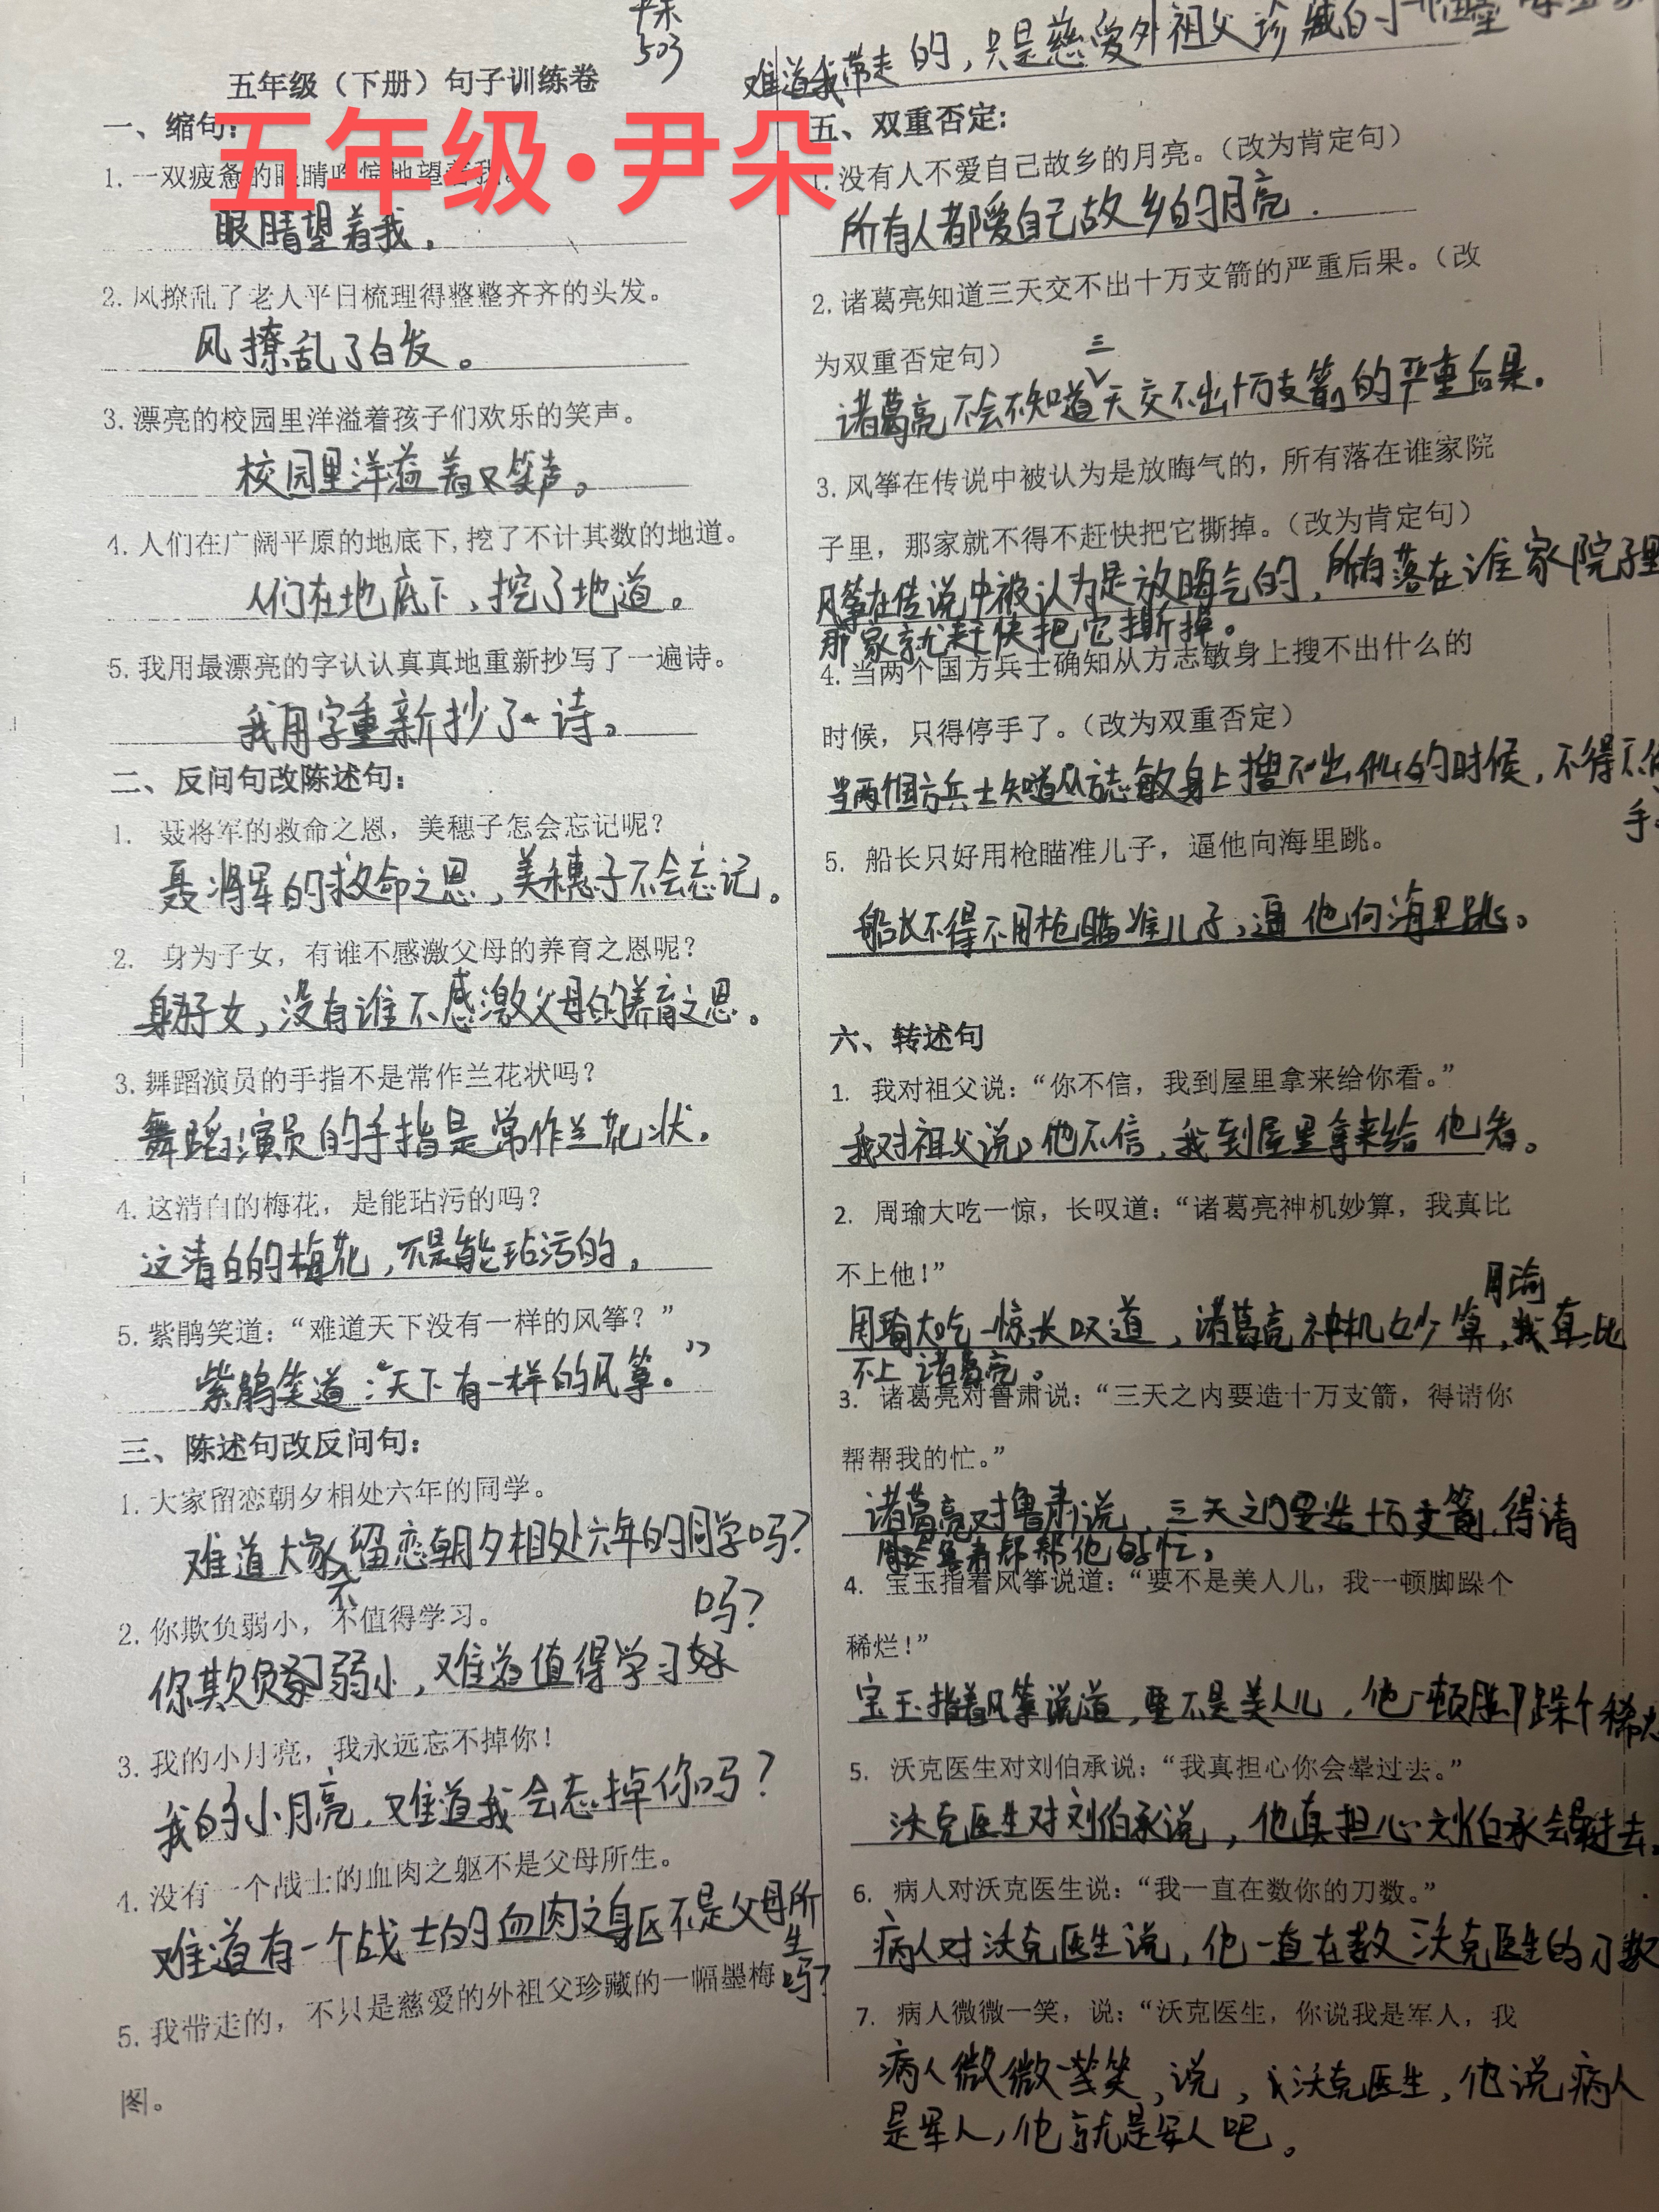 尹朵
503
五年级（下册）句子训练卷
五年级·尹朵
一、缩句：
1. 一双疲惫的眼睛吃惊地望着我。
眼睛望着我。
2. 风撩乱了老人平日梳理得整整齐齐的头发。
风撩乱了白发。
3. 漂亮的校园里洋溢着孩子们欢乐的笑声。
校园里洋溢着笑声。
4. 人们在广阔平原的地底下,挖了不计其数的地道。
人们在地底下，挖了地道。
5. 我用最漂亮的字认认真真地重新抄写了一遍诗。
我用字重新抄了诗。
二、反问句改陈述句：
1. 聂将军的救命之恩，美穗子怎会忘记呢？
聂将军的救命之恩，美穗子不会忘记。
2. 身为子女，有谁不感激父母的养育之恩呢？
身为子女，没有谁不感激父母的养育之恩。
3. 舞蹈演员的手指不是常作兰花状吗？
舞蹈演员的手指是常作兰花状。
4. 这清白的梅花，是能玷污的吗？
这清白的梅花，不是能玷污的。
5. 紫鹃笑道：“难道天下没有一样的风筝？”
紫鹃笑道：“天下有一样的风筝。”
三、陈述句改反问句：
1. 大家留恋朝夕相处六年的同学。
难道大家不留恋朝夕相处六年的同学吗？
2. 你欺负弱小，不值得学习。
你欺负弱小，难道值得学习吗？
3. 我的小月亮，我永远忘不掉你！
我的小月亮，难道我会忘掉你吗？
4. 没有一个战士的血肉之躯不是父母所生。
难道有一个战士的血肉之身区不是父母所生吗？
5. 我带走的，不只是慈爱的外祖父珍藏的一幅墨梅
图。
难道我带走的，只是慈爱外祖父珍藏的一幅墨
五、双重否定：
1. 没有人不爱自己故乡的月亮。（改为肯定句）
所有人都爱自己故乡的月亮．
2. 诸葛亮知道三天交不出十万支箭的严重后果。（改
为双重否定句）
诸葛亮不会不知道三天交不出十万支箭的严重后果。
3. 风筝在传说中被认为是放晦气的，所有落在谁家院
子里，那家就不得不赶快把它撕掉。（改为肯定句）
风筝在传说中被认为是放晦气的，所有落在谁家院子里
那家就赶快把它撕掉。
4. 当两个国方兵士确知从方志敏身上搜不出什么的
时候，只得停手了。（改为双重否定）
当两个国方兵士知道从方志敏身上搜不出什么的时候，不得不停
手
5. 船长只好用枪瞄准儿子，逼他向海里跳。
船长不得不用枪瞄准儿子，逼他向海里跳。
六、转述句
1. 我对祖父说：“你不信，我到屋里拿来给你看。”
我对祖父说，他不信，我到屋里拿来给他看。
2. 周瑜大吃一惊，长叹道：“诸葛亮神机妙算，我真比
不上他！”
周瑜大吃一惊，长叹道，诸葛亮神机妙算，周瑜真比
不上诸葛亮。
3. 诸葛亮对鲁肃说：“三天之内要造十万支箭，得请你
帮帮我的忙。”
诸葛亮对鲁肃说，三天之内要造十万支箭，得请
鲁肃帮帮他的忙，
4. 宝玉指着风筝说道：“要不是美人儿，我一顿脚跺个
稀烂！”
宝玉指着风筝说道，要不是美人儿，他一顿脚跺个稀烂
5. 沃克医生对刘伯承说：“我真担心你会晕过去。”
沃克医生对刘伯承说，他真担心刘伯承会晕过去。
6. 病人对沃克医生说：“我一直在数你的刀数。”
病人对沃克医生说，他一直在数沃克医生的刀数
7. 病人微微一笑，说：“沃克医生，你说我是军人，我
病人微微一笑，说，沃克医生，他说病人
是军人，他就是军人吧。